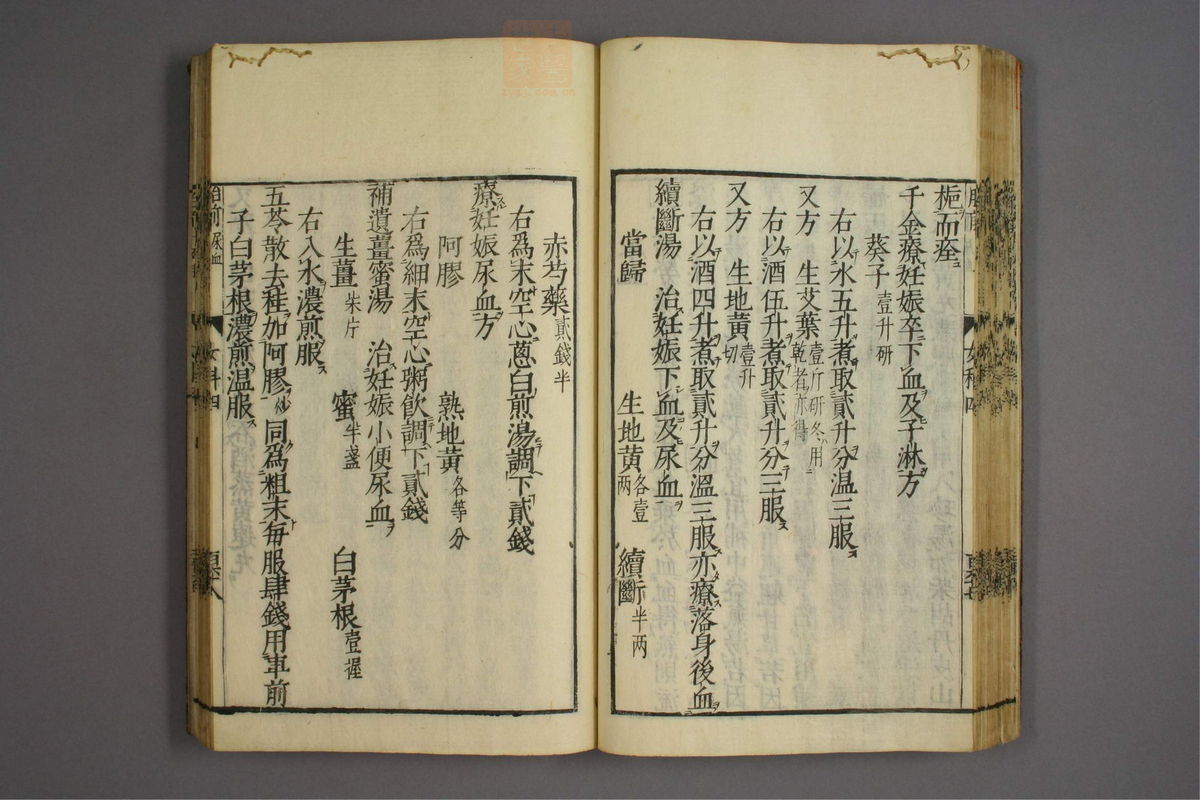 梔而痊
千金療妊娠卒下血及子淋方
葵子壹升研
右以水五升煮取貳升分温三服
又方 生艾葉壹斤研冬用乾者亦得
右以酒伍升煮取貳升分三服
又方 生地黃壹升切
右以酒四升煮取貳升分溫三服亦療落身後血
續斷湯 治妊娠下血及尿血
當歸 生地黄各壹两 續斷半两
赤芍藥貳錢半
右爲末空心蔥白煎湯調下貳錢
療妊娠尿血方
阿膠 熟地黄各等分
右爲細末空心粥飲調下貳錢
補遺薑蜜湯 治妊娠小便尿血
生薑柒片 蜜半盞 白茅根壹握
右入水濃煎服
五苓散去桂加阿膠炒同爲粗末每服肆錢用車前
子白茅根濃煎温服
胎前尿血 女科四